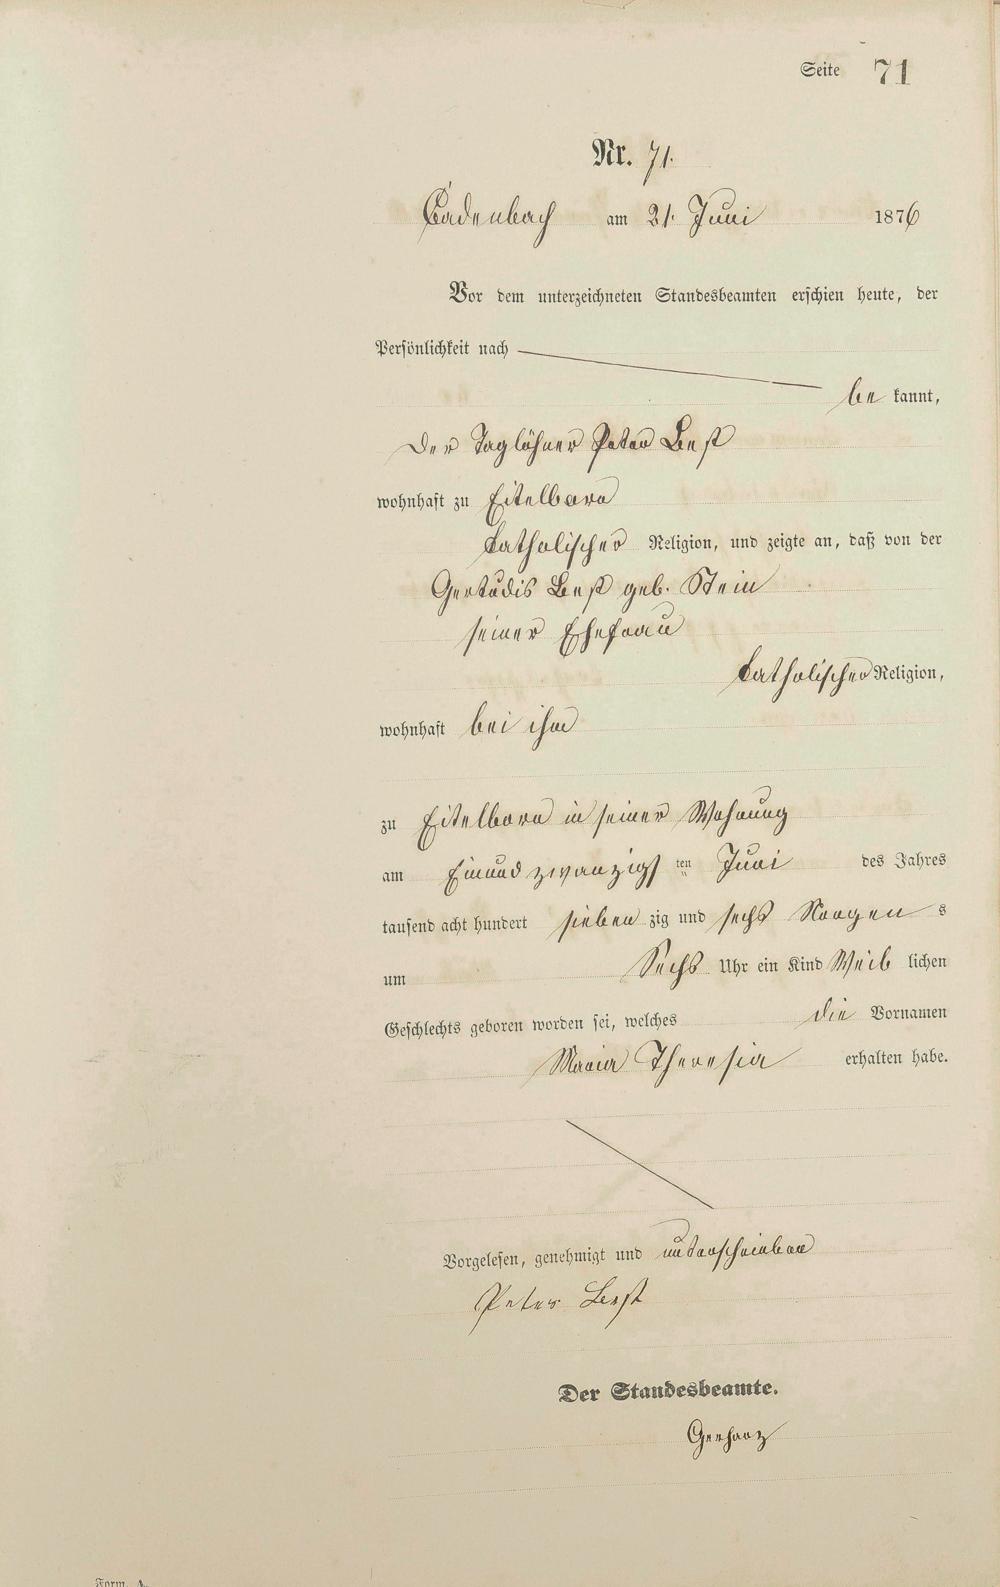 Seite 71
Nr. 71.
Cadenbach am 21. Juni 1876
Vor dem unterzeichneten Standesbeamten erschien heute, der
Persönlichkeit nach
be kannt,
der Taglöhner Peter Best
wohnhaft zu Eitelborn
katholischer Religion, und zeigte an, daß von der
Gertudis Best geb. Stein
seiner Ehefrau
katholischer Religion,
wohnhaft bei ihm
zu Eitelborn in seiner Wohnung
am Einund zwanzigs ten Juni des Jahres
tausend acht hundert sieben zig und sechs Morgen s
um Sechs Uhr ein Kind Weib lichen
Geschlechts geboren worden sei, welches die Vornamen
Maria Theresia erhalten habe.
Vorgelesen, genehmigt und unterschrieben
Peter Best
Der Standesbeamte.
Gerharz
Form.